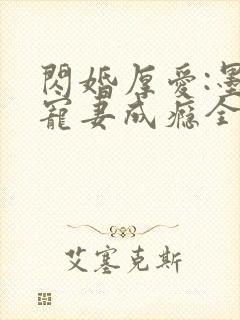 閃婚厚愛:墨
寵妻成癮全
艾塞克斯